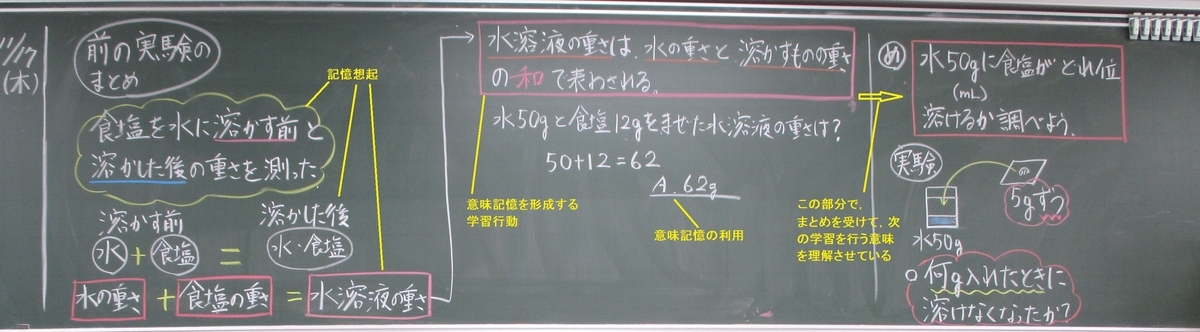 11/17
(木)
前の実験の
まとめ
記憶想起
食塩を水に溶かす前と
溶かした後の重さを測った
溶かす前
溶かした後
水+食塩=水・食塩
水の重さ+食塩の重さ=水溶液の重さ
水溶液の重さは、水の重さと、溶かすものの重さ
の和で表わされる。
水50gと食塩12gをまぜた水溶液の重さは?
50+12=62
A. 62g
意味記憶を形成する
学習行動
意味記憶の利用
この部分で,
まとめを受けて,次
の学習を行う意味
を理解させている
め
水50gに食塩がどれ位
(mL)
溶けるか調べよう。
実験
5gずつ
水50g
○何g入れたときに
溶けなくなったか?